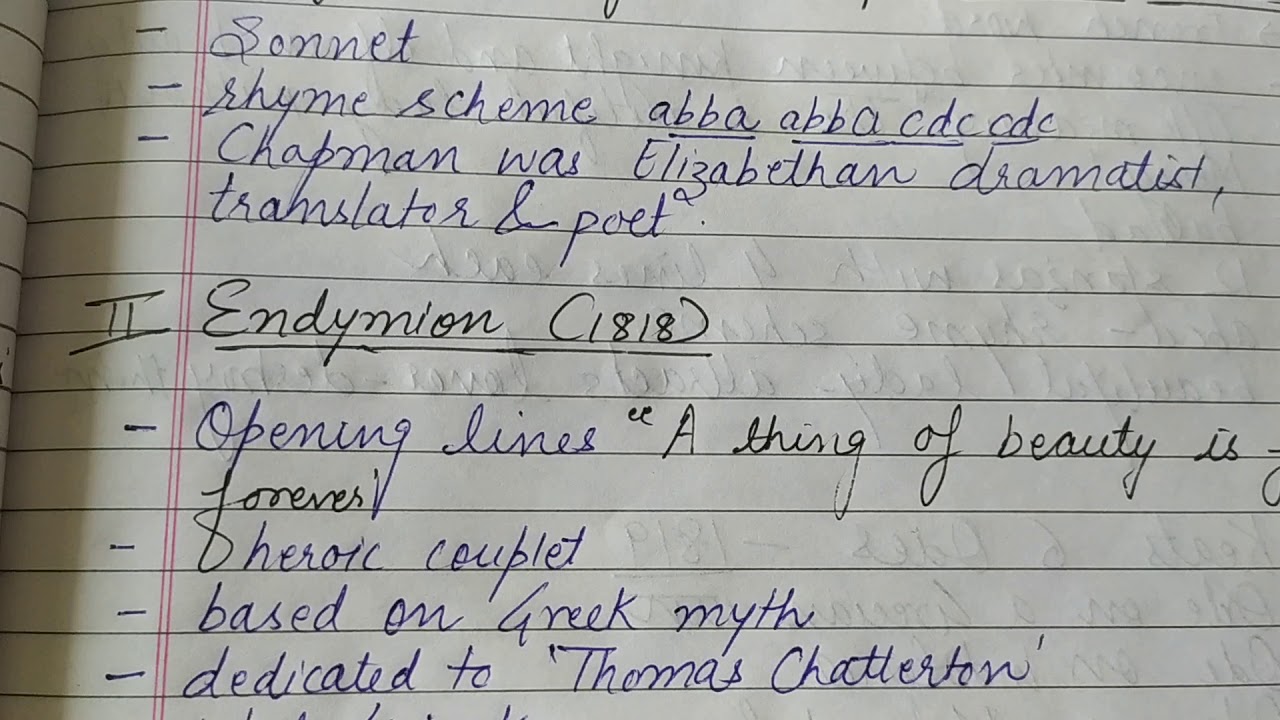 - Sonnet
- rhyme scheme abba abba cdc cdc
- Chapman was Elizabethan dramatist,
translator & poet.
II Endymion (1818)
- Opening lines "A thing of beauty is
forever'
- heroic couplet
- based on Greek myth
- dedicated to 'Thomas Chatterton'